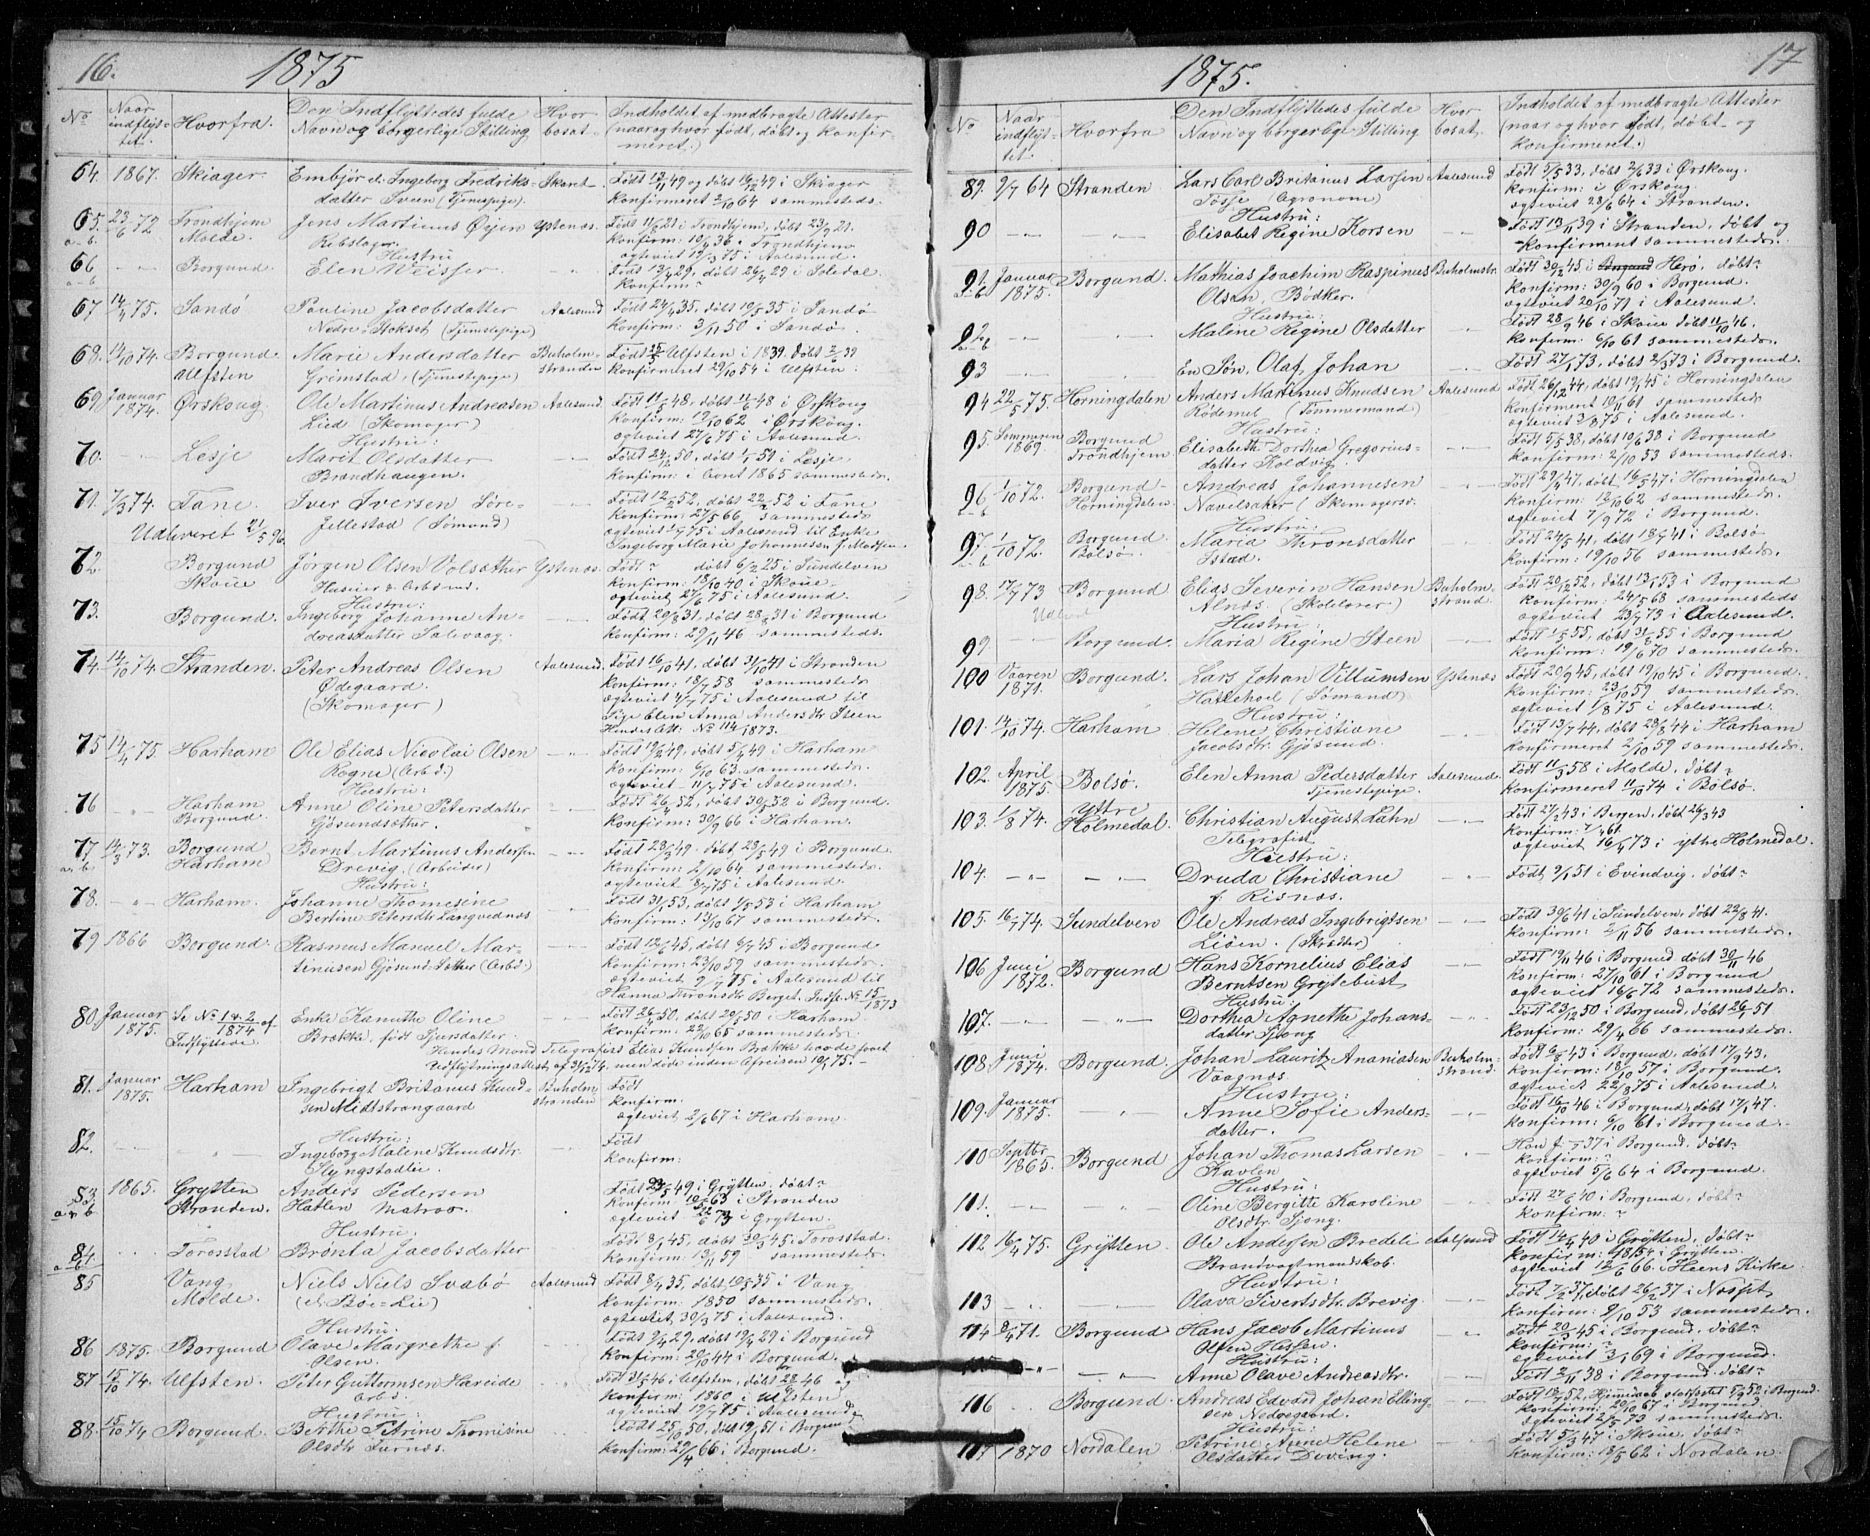 16.
1875
No
Naar indflyttet.
Hvorfra.
Den Indflyttedes fulde Navn og borgerlige Stilling
Hvor bosat.
Indholdet af medbragte Attester (naar og hvor født, døbt og konfirmeret.)
64. 1867. Skiager Embjør el. Ingeborg Fredriks- Skaret
datter Sveen (Tjenestepige).
Født 12/11 49 og døbt 16/12 49 i Skiager
Konfirmeret 2/10 64 sammesteds.
65. 23/6 72 Trondhjem Jens Martinus Øyen Ystenæs.
a-b. Molde. Rebslager.
Født 11/6 21 i Trondhjem, døbt 23/7 21.
Konfirm: 10/4 36 i Trondhjem
ægteviet 12/3 75 i Aalesund.
Hustru
66 Borgund. Elen Weisser.
a-b
Konfirm:
67 14/4 75. Sandø Pauline Jacobsdatter Aalesund
Nedre-Stokset (Tjenestepige)
Født 24/4 35, døbt 10/5 35 i Sandø
Konfirm: 3/11 50 i Sandø.
68. 14/10 74. Borgund. Marie Andersdatter Buholm-
Ulfsten Grimstad, (Tjenestepige) stranden
Født i Ulfsten i 1839. døbt 39
Konfirmeret 29/10 54 i Ulfsten:
69 Januar 1874. Ørskoug Ole Martinus Andreasen Aalesund.
Lied (Skomager)
Født 11/5 48, døbt 11/6 48 i Ørskoug
Konfirm: 19/10 62 i Ørskoug.
ægteviet 27/6 75 i Aalesund.
Hustru:
70. Lesje Marit Olsdatter
Brandhaugen.
Født 24/12 50, døbt 1/1 51 i Lesje
Konfirm: i Aaret 1865 sammesteds.
71. 7/3 74. Fane. Iver Iversen Søre-
Udleveret 21/5 96. Jellestad (Sømand)
Født 12/2 52, døbt 22/2 52 i Fane
Konfirm: 27/5 66 sammesteds
ægteviet 75 i Aalesund til Enke
Ingeborg Marie Johannessen f. Madsen.
72. Borgund Jørgen Olsen Volsæther Ystenæs.
Skoue Huseier & Arbmd.
Født ~ døbt 6/2 25 i Sundelven
Konfirm: 18/10 40 i Skoue
ægteviet 27/6 75 i Aalesund.
Hustru:
73. Borgund. Ingeborg Johanne An-
dreasdatter Salevaag.
Født 20/8 31, døbt 28/8 31 i Borgund
Konfirm: 29/11 46 sammesteds.
74. 14/10 74 Stranden. Peter Andreas Olsen Aalesund.
Ødegaard.
(Skomager)
Født 16/10 41, døbt 31/10 41 i Stranden
Konfirm: 18/7 58 sammesteds
ægteviet 4/7 75 i Aalesund til
Pige Elen Anna Andersdtr Steen
Hendes Att: No 114/1873.
75 14/4 75. Harham Ole Elias Nicolai Olsen
Rogne (Arbd.)
Født 19/2 49, døbt 5/4 49 i Harham
Konfirm: 6/10 63. sammesteds.
ægteviet 11/7 75 i Aalesund.
Hustru:
76 Harham Anne Oline Petersdatter
Borgund. Gjøsundsæther.
Født 26/4 52, døbt 30/5 52 i Borgund.
Konfirm: 30/9 66 i Harham.
77 14/3 73. Borgund Bernt Martinus Andersen
a-b Harham Drevig. (Arbeider)
Født 28/3 49, døbt 23/5 49 i Borgund.
Konfirm: 2/10 64 sammesteds.
ægteviet 8/7 75 i Aalesund.
Hustru:
78. Harham. Johanne Thomesine
Bertine Petersdtr Langvednæs
Født 31/3 53, døbt 1/5 53 i Harham
Konfirm: 13/10 67 sammesteds.
79 1866 Borgund. Rasmus Manuel Mar-
tinusen Gjøsund-Sæther (Arbd:)
Født 12/6 45, døbt 6/7 45 i Borgund
Konfirm: 23/10 59 sammesteds.
ægteviet 9/7 75 i Aalesund til
Hanna Thronsdtr Berget. Indfl. No 15/1873
80. Januar 1875. Se No 1 & 2/1874 af Indflyttede Enke Kanutte Oline
Brække, født Sjursdatter
Født 26/3 50, døbt 20/5 50 i Harham
Konfirm: 22/10 65 sammesteds.
Hendes Mand Telegrafist Elias Knudsen Brække havde faaet
Udflytningsattest af 31/12 74, men døde inden Afreisen 10/1 75.
81. Januar 1875. Harham Ingebrigt Britanus Knud- Buholm-
sen Midtstrangaard stranden
Født
Konfirm:
ægteviet 2/6 67 i Harham.
Hustru:
82. Ingeborg Malene Knudsdtr.
Slyngstadlie.
Født
Konfirm:
83 1865. Grytten Anders Pedersen
a-b Stranden. Hatlen Matros.
Født 23/5 49 i Grytten, døbt ~
Konfirm 10/5 63 i Stranden
ægteviet 22/6 73 i Grytten.
Hustru:
84 Torosstad Brønta Jacobsdatter
a-b
Født 8/1 45, døbt 30/3 45 i Torosstad.
Konfirm: 13/11 59 sammesteds.
85 Vang Niels Niels Svabø Aalesund.
Molde. (el. Bøe-Lie)
Født 8/4 35, døbt 19/5 35 i Vang
Konfirm. 1850 sammesteds.
ægteviet, 30/3 75 i Aalesund.
Hustru:
86 1875. Borgund Olave Margrethe f.
Olsen.
Født 9/4 29, døbt 19/4 29 i Borgund
Konfirm: 20/10 44 i Borgund.
87 15/10 74. Ulfsten. Peter Guttormsen Hareide
Arbd.
Født 31/5 46 i Ulfsten, døbt 28/6 46 og
Konfirm: 1860 i Ulfsten
ægteviet 19/7 75 i Aalesund.
Hustru:
88. 15/10 74 Borgund. Berthe Petrine Thomisine
Olsdtr Furnæs.
Født 25/10 50, døbt 19/1 51 i Borgund
Konfirm: 29/4 66 i Borgund.
17
1875.
No
Naar indflyttet.
Hvorfra
Den Indflyttedes fulde Navn og borgerlige Stilling
Hvor bosat.
Indholdet af medbragte Attester (naar og hvor født, døbt og konfirmeret.)
89. 9/7 64 Stranden Lars Carl Britanus Larsen Aalesund
Tøsse Agronom)
Født 5/5 33, døbt 2/6 33 i Ørskoug.
Konfirm: i Ørskoug.
ægteviet 28/6 64 i Stranden.
Hustru:
90 Elisabet Regine Korsen
Født 13/11 39 i Stranden, døbt og
Konfirment sammesteds.
91 Januar 1875. Borgund. Mathias Joachim Raspinus Buholmstr.
a-b Olsen, Bødker.
Født 30/2 45 i Herø, døbt ~
Konfirm: 30/9 60 i Borgund.
ægteviet 20/10 71 i Aalesund.
Hustru:
92 Malene Regine Olsdatter
a-b
Født 28/9 46 i Skoue døbt 11/10 46.
Konfirm. 6/10 61 sammesteds.
93 En Søn, Olaf Johan
Født 27/1 73, døbt 2/3 73 i Borgund.
94 22/5 75. Horningdalen. Anders Martinus Knudsen Aalesund
Rødemel (Tømmermand)
Født 26/12 44, døbt 19/1 45 i Horningdalen
Konfirmeret 10/11 61 sammesteds
ægteviet 2/8 75 i Aalesund.
Hustru:
95. Sommeren 1869. Borgund Elisabeth Dorthea Gregorius-
Trondhjem datter Koldvig.
Født 5/5 38, døbt 10/6 38 i Borgund
Konfirm: 2/10 53 sammesteds.
96 1/10 72. Borgund- Andreas Johannesen
a-b Horningdalen Navelsaker (Skomagersv.
Født 29/4 47, døbt 16/5 47 i Horningdalen
Konfirm: 12/10 62 sammesteds.
ægteviet 7/9 72 i Borgund.
Hustru:
97. 1/10 72. Borgund Maria Thronsdatter
a-b Bolsø. Istad.
Født 24/5 41, døbt 18/7 41 i Bolsø
Konfirm: 19/10 56 sammesteds.
98. 17/7 73 Borgund Elias Severin Hansen Buholm-
Alnæs. (Skolelærer) strand.
Født 20/12 52, døbt 13/1 53 i Borgund
Konfirm: 24/5 68 sammesteds
ægteviet 23/7 73 i Aalesund.
Hustru:
99 Borgund. Maria Regine Steen
Født 1/5 55, døbt 31/5 55 i Borgund
Konfirm: 19/6 70 sammesteds.
100 Vaaren 1871. Borgund. Lars Johan Villumsen Ystenæs
Hatlehoel (Sømand).
Født 20/9 45, døbt 19/10 45 i Borgund.
Konfirm: 23/10 59 sammesteds.
ægteviet 1/8 75 i Aalesund.
Hustru:
101. 14/10 74. Harham. Helene Christiane
Jacobsdtr. Gjøsund.
Født 13/7 44, døbt 28/7 44 i Harham
Konfirmeret 2/10 59 sammesteds.
102. April 1875. Bolsø. Elen Anna Pedersdatter Aalesund.
Tjenestepige.
Født 11/3 58 i Molde, døbt ~
Konfirmeret 11/10 74 i Bolsø.
103. 1/8 74. Yttre Holmedal. Christian August Lahn
Telegrafist
Født 27/2 43 i Bergen, døbt 26/3 43
Konfirm: 7/4 61.
ægteviet 16/4 73 i ythe Holmedal.
Hustru:
104. Druda Christiane
f. Risnæs.
Født 9/1 51 i Evindvig, døbt ~
105 16/7 74. Sundelven Ole Andreas Ingebrigtsen
Liøen. (Skræder)
Født 30/6 41 i Sundelven, døbt 22/8 41.
Konfirm: 2/11 56 sammesteds.
106 Juni 1872. Borgund Hans Kornelius Elias
Berntsen Grytebust
Født 19/11 46 i Borgund døbt 30/11 46
Konfirm: 27/10 61 i Borgund
ægteviet 16/6 72 sammesteds.
Hustru:
107. Dorthea Agnethe Johans-
datter Sjong
Født 23/12 50 i Borgund, døbt 26/1 51
Konfirm: 29/4 66 i Borgund
108 Juni 1874. Borgund. Johan Lauritz Ananiasen Buholm-
Vaagnæs. strand.
Født 6/8 43 i Borgund, døbt 17/9 43.
Konfirm: 18/10 57 i Borgund.
ægteviet 22/8 75 i Aalesund.
Hustru:
109. Januar 1875. Anne Sofie Anders-
datter.
Født 16/10 46 i Borgund, døbt 17/1 47.
Konfirm: 6/10 61 i Borgund.
110 Septbr 1865. Borgund Johan Thomas Larsen
Kavlen
Han f. 37 i Borgund. døbt ~
Konfirm: ~
ægteviet 5/6 64 i Borgund.
Hustru:
111. Oline Bergitte Karoline
Olsdtr. Sjong.
Født 27/6 40 i Borgund, døbt ~
Konfirm: ~
112 16/4 75. Grytten. Ole Andersen Bredeli Aalesund
Brandvagtmandskab.
Født 14/5 40 i Grytten, døbt ~
Konfirm: 1854 i Grytten.
ægteviet 12/6 66 i Heens Kirke.
Hustru:
113 Olava Sivertsdtr. Brevig
Født 7/2 37, døbt 26/2 37 i Næsset
Konfirm: 9/10 53 sammesteds.
114 71. Borgund Hans Jacob Martinus
Olsen Hessen.
Født 20/3 45 i Borgund, døbt ~
Konfirm: ~
ægteviet 3/1 69 i Borgund.
Hustru:
Anne Olave Andreasdtr.
Født 2/11 38 i Borgund, døbt ~
116 Borgund. Andreas Edvard Johan Elling-
sen Nedregaard.
Konfirm: 20/10 67 i Borgund
ægteviet 2/5 73 sammesteds.
Hustru:
117 1870 Nordalen. Petrine Anne Helene
Olsdatter Døving.
Født 5/3 47 i Skoue, døbt ~
Konfirm: 13/5 62 i Nordalen.